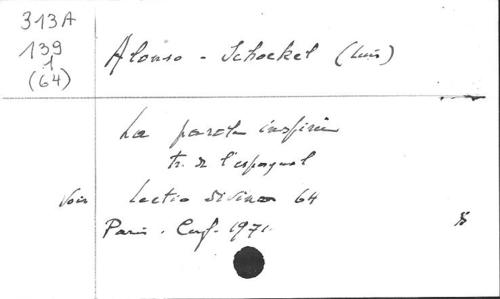 313A
139
1
(64)
Alonso - Schoekel (Luis)
La parole inspirée
tr. de l'espagnol
Voir Lectio divina 64
Paris. Cerf. 1971.